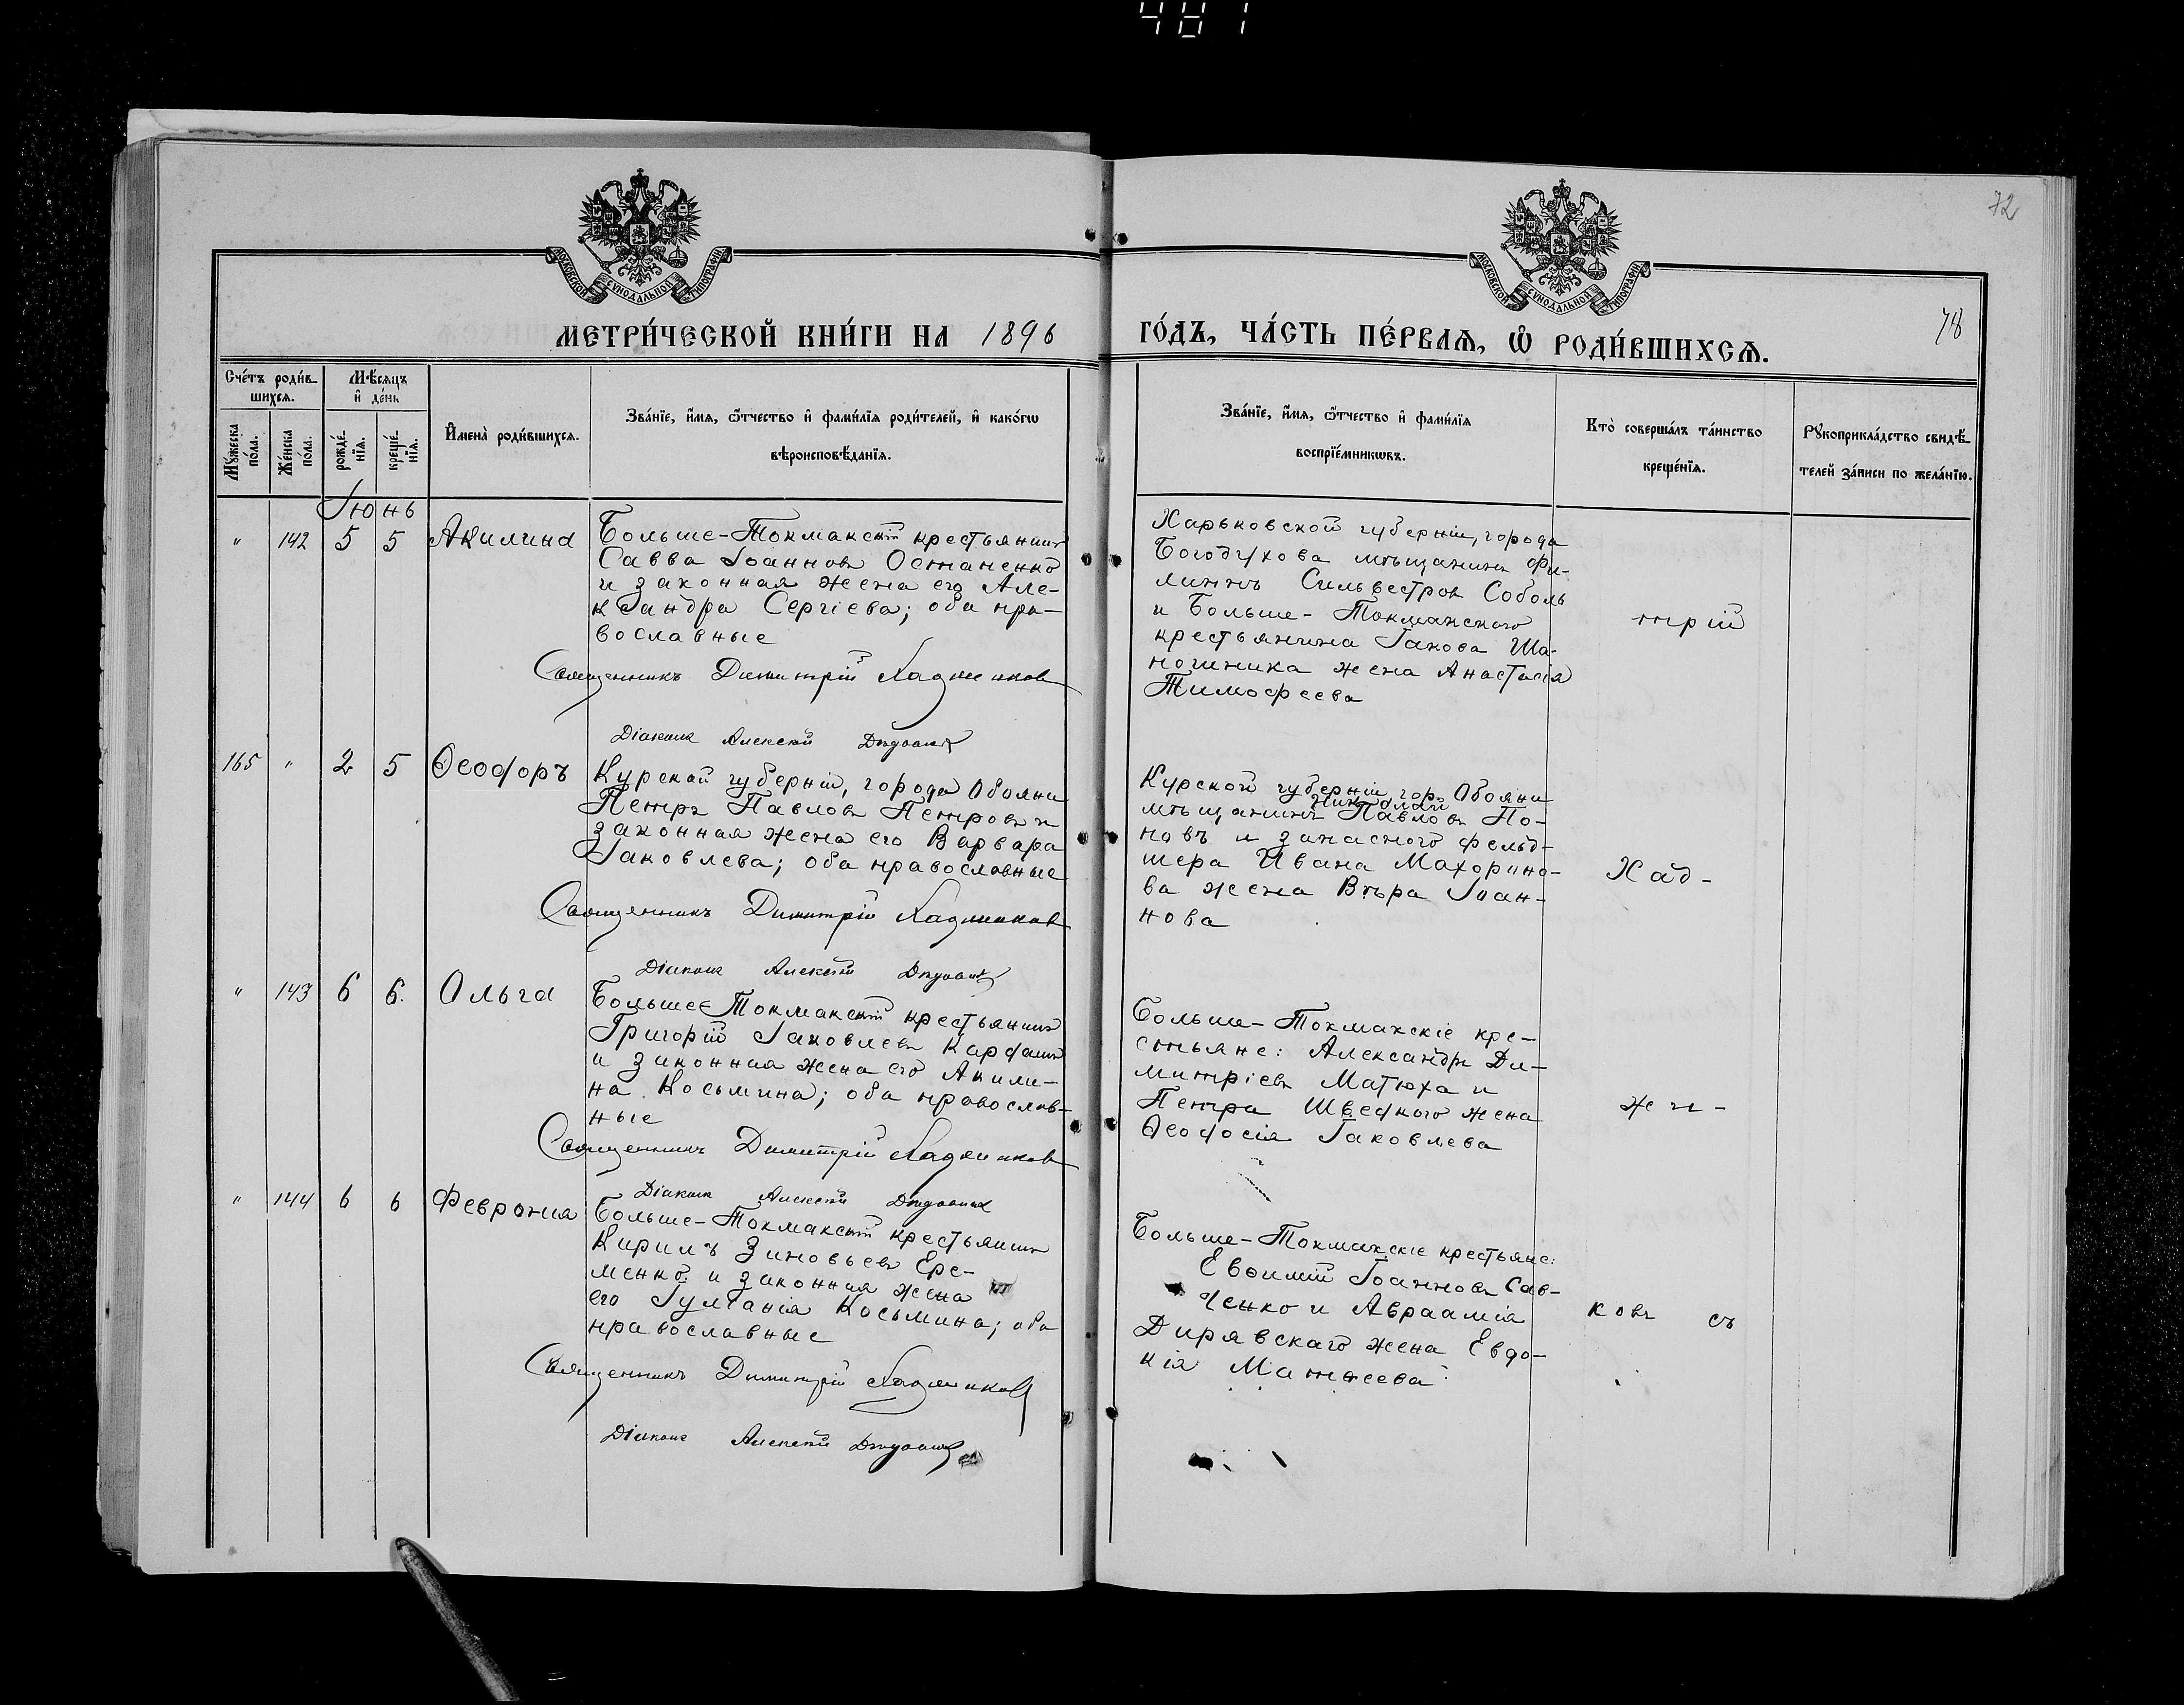 481
72
78
МОСКОВСКОЙ СѴНОДАЛЬНОЙ ТИПОГРАФІИ
МОСКОВСКОЙ СѴНОДАЛЬНОЙ ТИПОГРАФІИ
МЕТРИ́ЧЕСКОЙ КНИ́ГИ НА 1896 ГО́ДЪ, ЧА́СТЬ ПЕ́РВАѦ, Ѽ РОДИ́ВШИХСѦ.
Сче́тъ роди́в-
шихсѧ.
Мѣ́сѧцъ
и҆ де́нь
Мꙋ́жеска по́ла.
Же́нска по́ла.
рожде́-
нїѧ.
креще́-
нїѧ.
И҆мена̀ роди́вшихсѧ.
Зва́нїе, и҆́мѧ, ѻ҆́тчество и҆ фами́лїѧ роди́телей, и҆ како́гѡ
вѣроисповѣ́данїѧ.
Зва́нїе, и҆́мѧ, ѻ҆́тчество и҆ фами́лїѧ
воспрїе́мникѡвъ.
Кто̀ соверша́лъ та́инство
креще́нїѧ.
Рꙋкоприкла́дство свидѣ́-
телей за́писи по жела́нїю.
Іюнь
" 142 5 5 Акилина
Больше-Токмакскій крестьянинъ
Савва Іоанновъ Остапенко
и законная жена его Але-
ксандра Сергіева; оба пра-
вославные
Священникъ Димитрій Хаджиновъ
Діаконъ Алексѣй
Харьковской губерніи, города
Богодухова мѣщанинъ Фи-
липпъ Сильвестровъ Соболь
и Больше-Токмакскаго
крестьянина Іакова Ша-
пошника жена Анастасія
Тимофеева
трій
165 " 2 5 Ѳеодоръ
Курской губерніи, города Обояни
Петръ Павловъ Петровъ и
законная жена его Варвара
Іаковлева; оба православные
Священникъ Димитрій Хаджиновъ
Діаконъ Алексѣй
Курской губерніи гор. Обояни
Николай
мѣщанинъ Павловъ По-
повъ и запаснаго фельд-
шера Ивана Махорино-
ва жена Вѣра Іоан-
нова
Хад-
" 143 6 6. Ольга
Больше-Токмакскій крестьянинъ
Григорій Іаковлевъ Кардашъ
и законная жена его Акили-
на Косьмина; оба православ-
ные
Священникъ Димитрій Хаджиновъ
Діаконъ Алексѣй
Больше-Токмакскіе кре-
стьяне: Александръ Ди-
митріевъ Матюха и
Петра Шведкого жена
Ѳеодосія Іаковлева
жи-
" 144 6 6 Феврония
Больше-Токмакскій крестьянинъ
Кирилъ Зиновьевъ Ере-
менко и законная жена
его Іуліанія Косьмина; оба
православные
Священникъ Димитрій Хаджиновъ
Діаконъ Алексѣй
Больше-Токмакскіе крестьяне:
Евѳимій Іоанновъ Сав-
ченко и Авраамія
Дирявскаго жена Евдо-
кія Матѳеева
ковъ съ